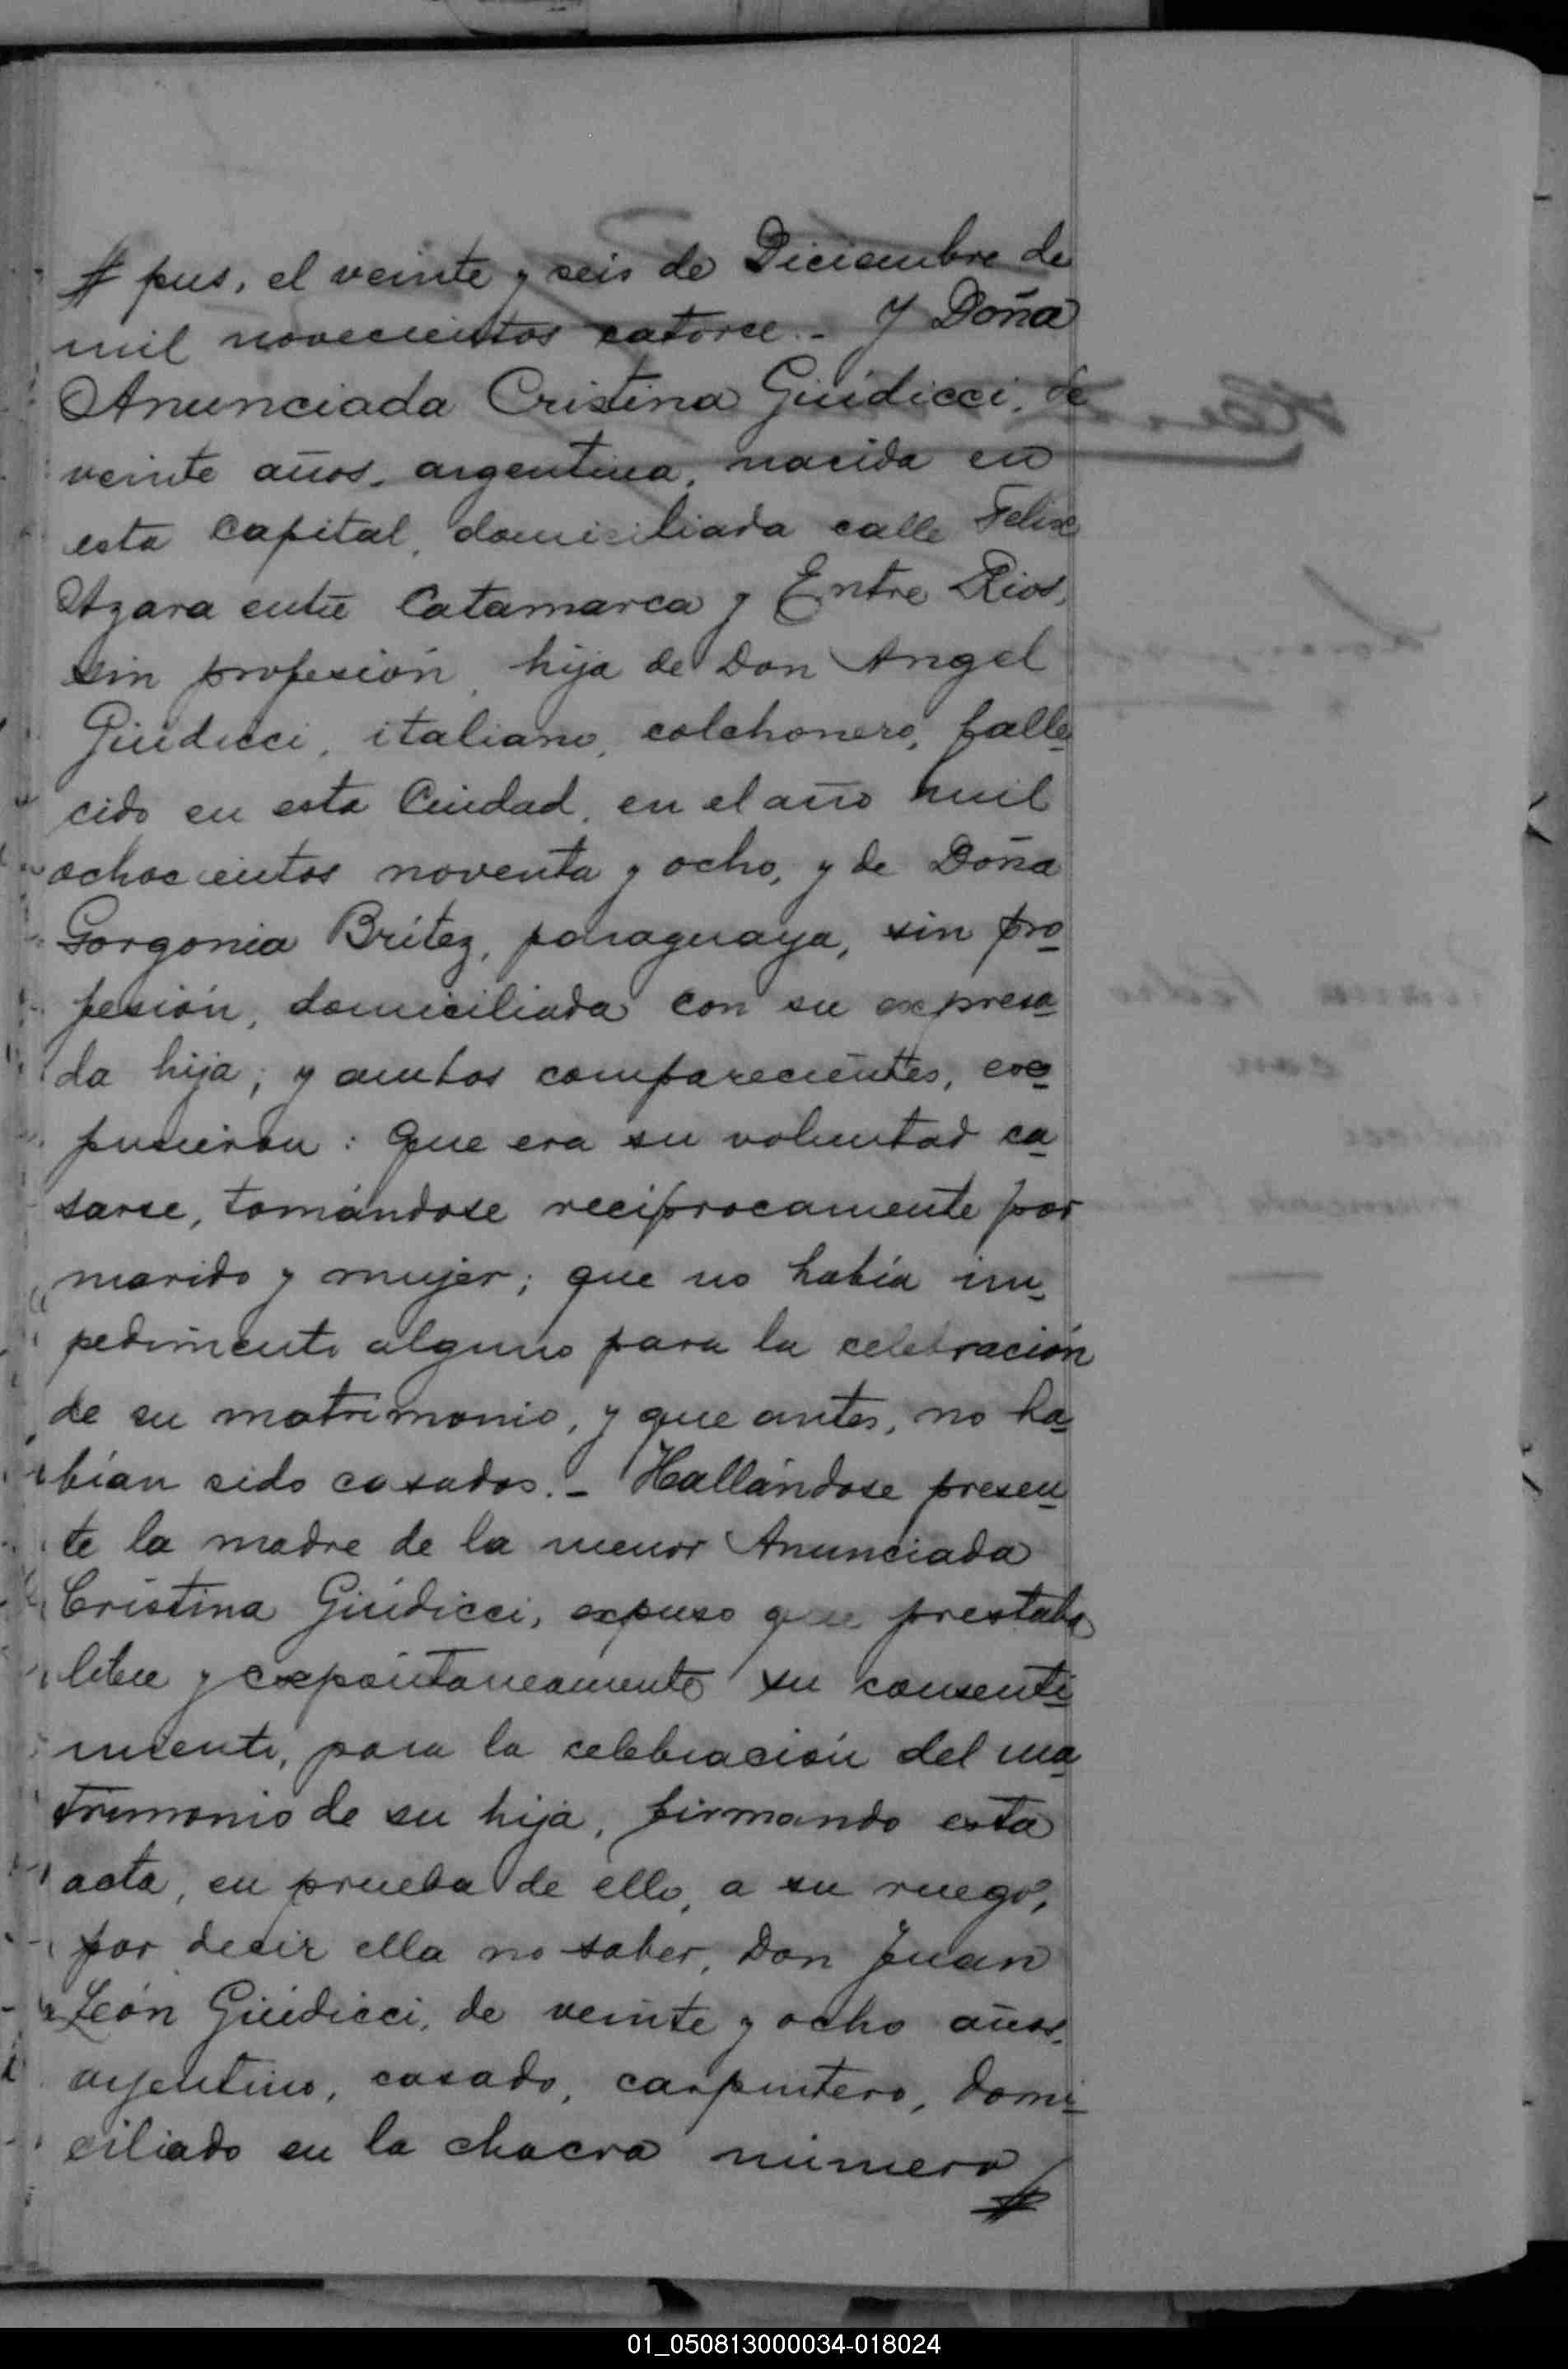 # pus, el veinte y seis de Diciembre de
mil novecientos catorce.- Y Doña
Anunciada Cristina Giúdicci, de
veinte años, argentina, nacida en
esta Capital, domiciliada calle Felix
Azara entre Catamarca y Entre Rios,
sin profesión, hija de Don Angel
Giudicci, italiano, colchonero, falle
cido en esta Ciudad, en el año mil
ochocientos noventa y ocho, y de Doña
Gorgonia Britez, paraguaya, sin pro
fesión, domiciliada con su expresa
da hija; y ambos comparecientes, ex
pusieron: Que era su voluntad ca
sarse, tomándose recíprocamente por
marido y mujer; que no había im
pedimento alguno para la celebración
de su matrimonio, y que antes, no ha
bían sido casados.- Hallándose presen
te la madre de la menor Anunciada
Cristina Giúdicci, expuso que prestaba
libre y expontaneamente su consenti
miento, para la celebración del ma
trimonio de su hija, firmando esta
acta, en prueba de ello, a su ruego,
por decir ella no saber, Don Juan
León Giúdicci, de veinte y ocho años,
argentino, casado, carpintero, domi
ciliado en la chacra número
#
01_050813000034-018024